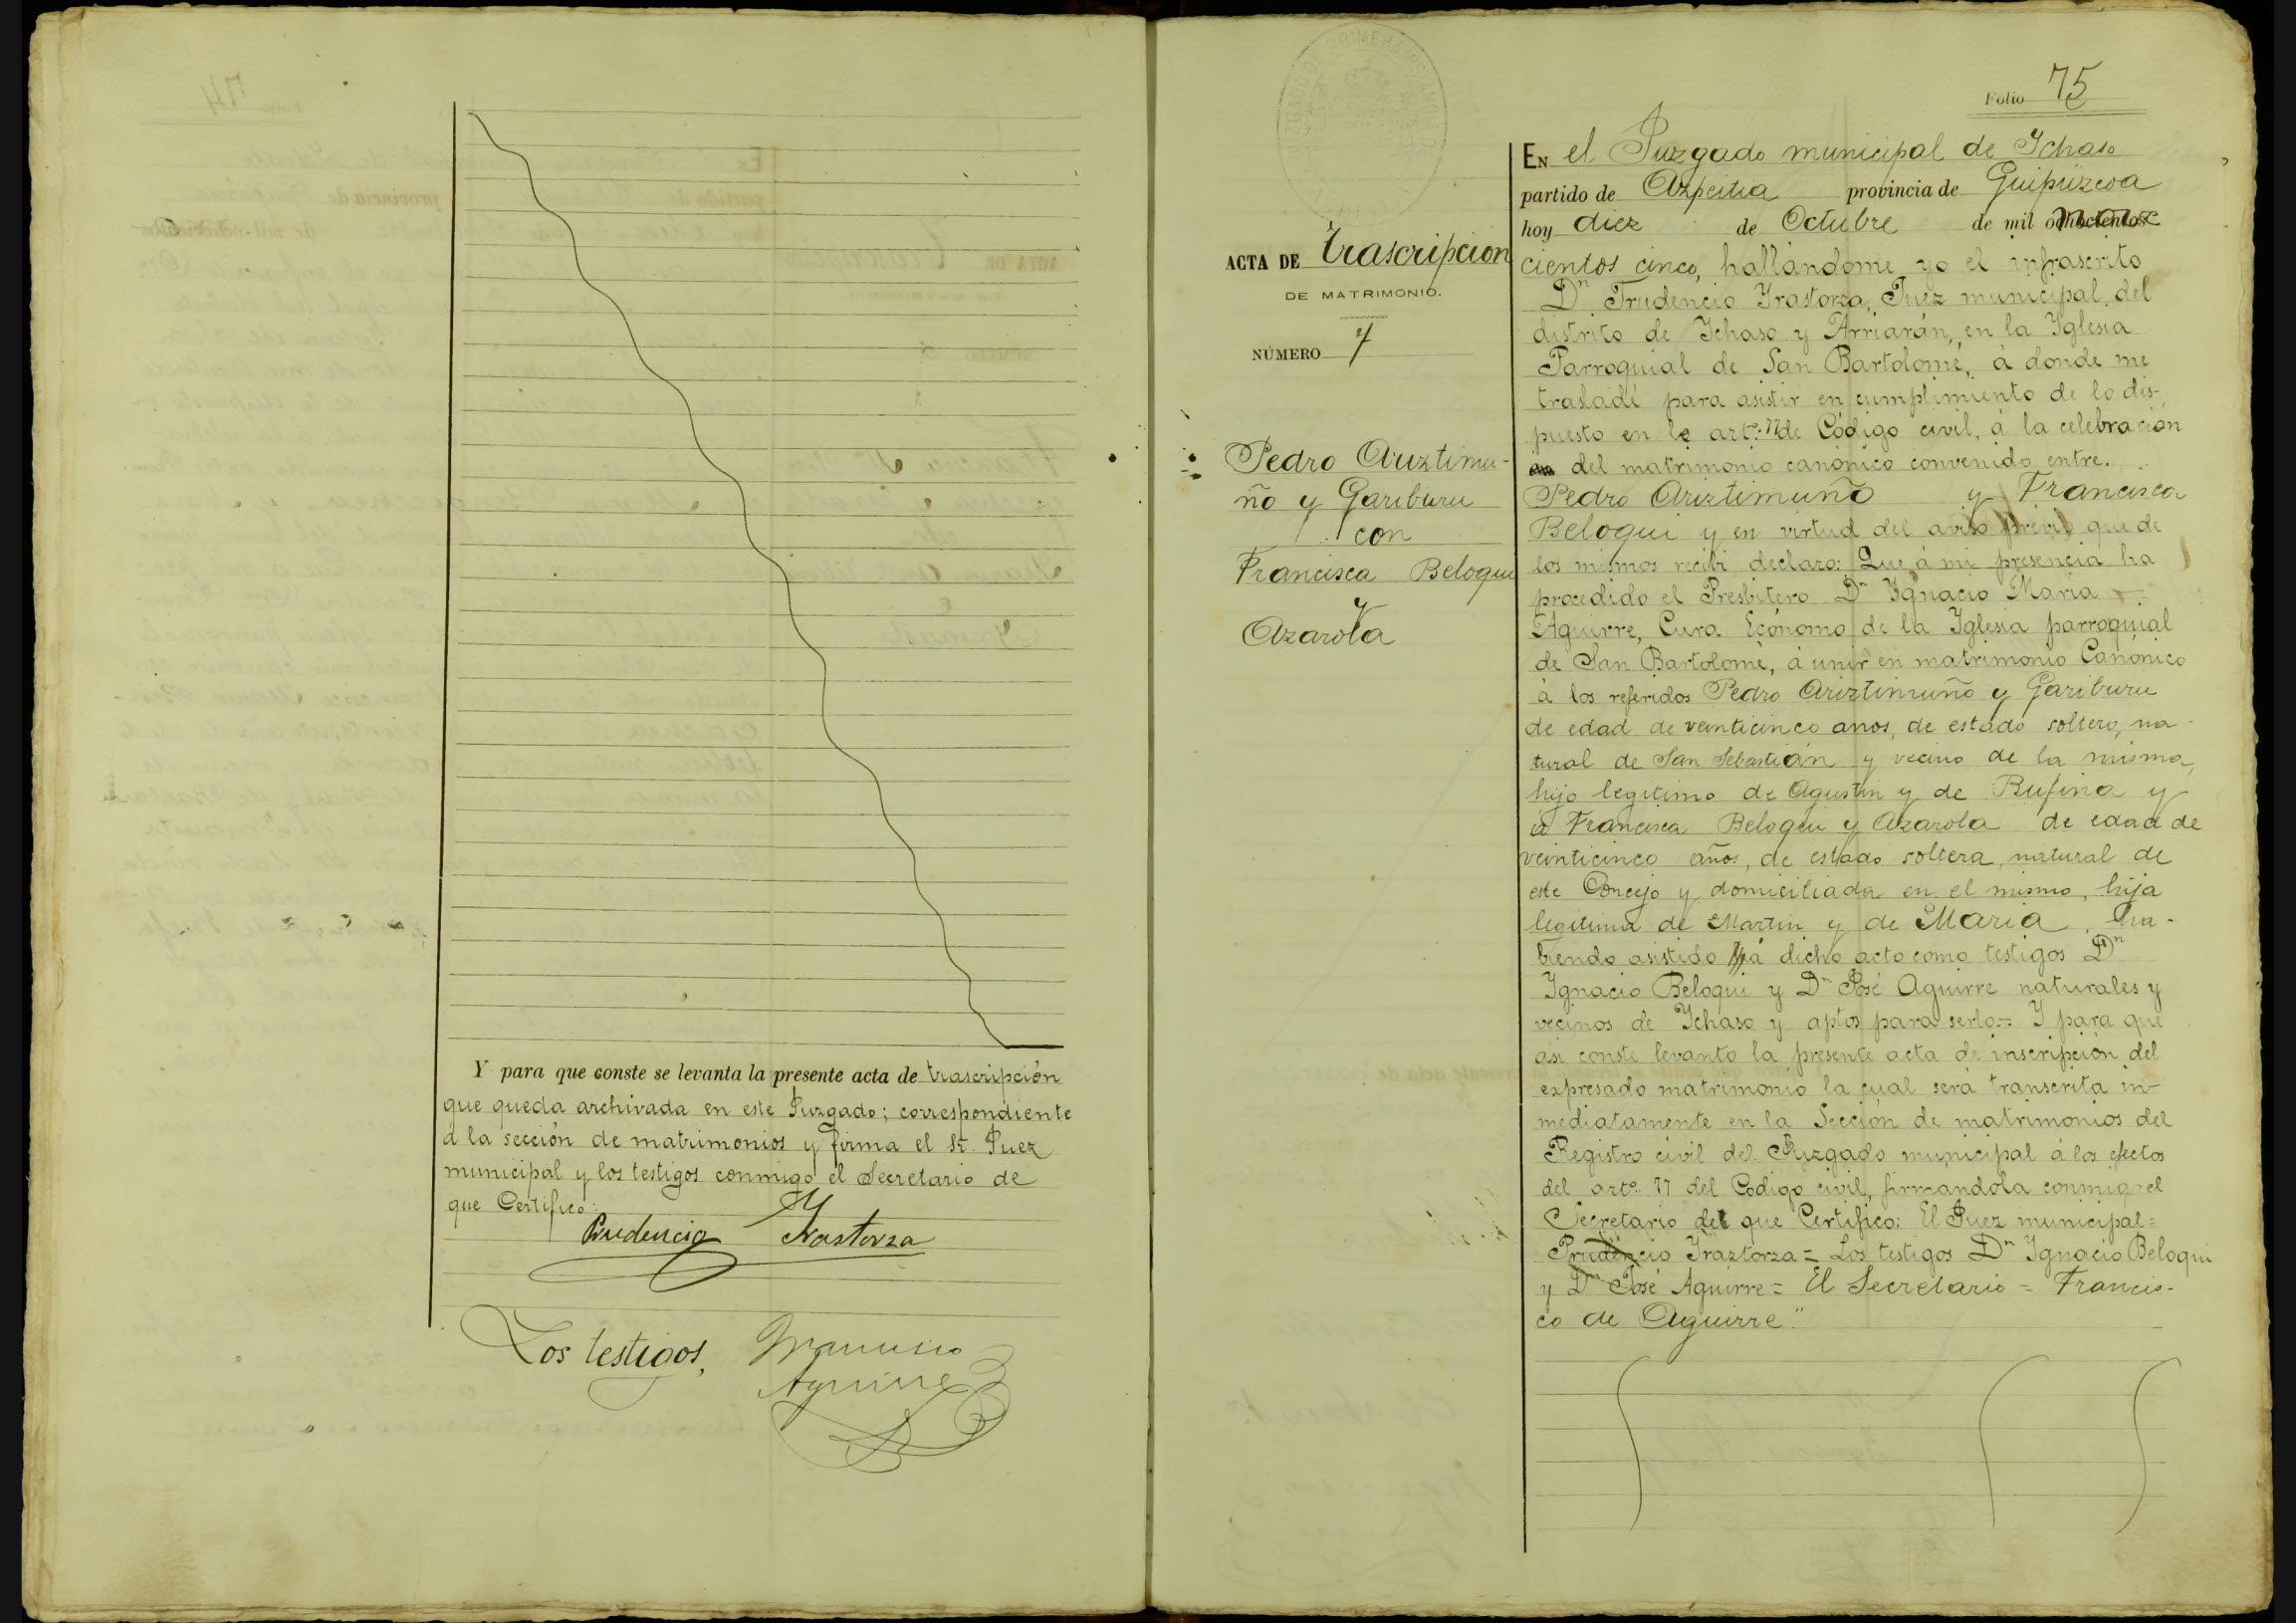 Y para que conste se levanta la presente acta de trascripción
que queda archivada en este Juzgado; correspondiente
á la sección de matrimonios y firma el Sr. Juez
municipal y los testigos conmigo el Secretario de
que Certifico:
Prudencio Yrastorza
Los testigos, Francisco
Aguirre
Folio 75
ACTA DE trascripcion
DE MATRIMONIO.
NÚMERO 7
Pedro Ariztimu-
ño y Gariburu
con
Francisca Beloqui
y
Azarola
EN el Juzgado municipal de Ychaso
partido de Azpeitia provincia de Guipúzcoa
hoy diez de Octubre de mil
cientos cinco, hallándome yo el infrascrito
Dn Prudencio Yrastorza, Juez municipal del
distrito de Ychaso y Arriarán, en la Yglesia
Parroquial de San Bartolomé, á donde me
trasladé para asistir en cumplimiento de lo dis-
puesto en le arto. 77 de Código civil, á la celebracion
del matrimonio canónico convenido entre.
Pedro Ariztimuño y Francisca
Beloqui y en virtud del aviso previo que de
los mismos recibi declaro: Que á mi presencia ha
procedido el Presbitero Dn Ygnacio Maria
Aguirre, Cura Ecónomo de la Yglesia parroquial
de San Bartolomé, á unir en matrimonio Canónico
á los referidos Pedro Ariztimuño y Gariburu
de edad de veinticinco anos, de estado soltero, na-
tural de San Sebastián y vecino de la misma,
hijo legitimo de Agustin y de Rufina y
á Francisca Beloqui y Azarola de edad de
veinticinco años, de estado soltera, natural de
este Concejo y domiciliada en el mismo, hija
legitima de Martin y de Maria, ha-
biendo asistido á dicho acto como testigos Dn
Ygnacio Beloqui y Dn José Aguirre naturales y
vecinos de Ychaso y aptos para serlo.= Y para que
asi conste levanto la presente acta de inscripción del
expresado matrimonio la cual será transcrita in-
mediatamente en la Sección de matrimonios del
Registro civil del Juzgado municipal á los efectos
del arto. 77 del Codigo civil, firmandola conmigo el
Secretario del que Certifico: El Juez municipal=
Prudencio Yraztorza= Los testigos Dn Ygnacio Beloqui
y Dn José Aguirre= El Secretario= Francis-
co de Aguirre."